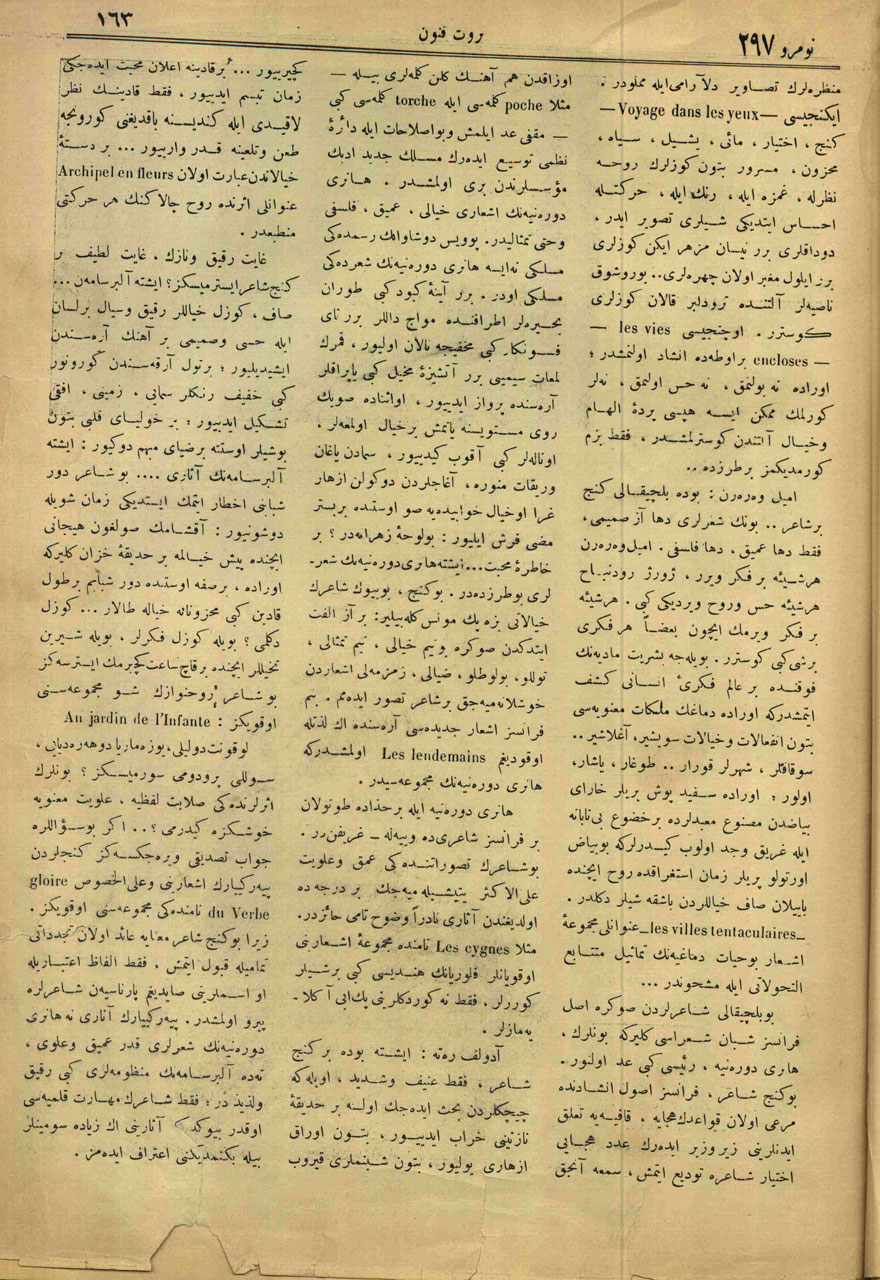 نومرو ٢٩٧
ثروت فنون
١٦٣
منظره‌لرك تصاوير دلآرامى ايله مملودر .
ايكنجيسى —Voyage dans les yeux—
كنج ، اختيار ، مائى ، يشيل ، سياه ،
محزون ، مسرور بتون كوزلرك روحه
نظرله ، غمزه ايله ، رنك ايله ، حركتله
احساس ايتديكى شيلرى تصوير ايدر ،
دوداقلرى برر نيسان مزهر ايكن كوزلرى
برر ايلول مغبر اولان چهره‌لرى.. بوروشوق
ناصيه‌لر آلتنده ترودلبر قالان كوزلرى
كوسترر . اوچنجيسى les vies —
— encloses بر اوطه‌ده انشاد اولنمشدر ؛
اوراده نه بولنمق ، نه حس اولنمق ، نه‌لر
كورلمك ممكن ايسه هپسى پردهٔ الهام
وخيال آلتندن كوسترلمشدر ، فقط بزم
كورمديكمز بر طرزده ..
اميل وه‌ره‌رن : بوده بلچيقالى كنج
بر شاعر .. بونك شعرلرى دها آز صميمى ،
فقط دها عميق ، دها فلسفى . اميل وه‌ره‌رن
هر شيئه بر فكر ويرر ، ژورژ رودنباخ
هر شيئه حس وروح ويرديكى كبى . هر شيئه
بر فكر ويرمك ايچون بعضاً هر فكرى
بر شى كبى كوسترر . بويله‌جه بشريت ماديه‌نك
فوقنده بر عالم فكرىٔ انسانى كشف
ايتمشدركه اوراده دماغك ملكات معنويه‌سى
بتون انفعالات وخيالات سويشير ، آغلاشير ..
سوقاقلر ، شهرلر قورار .. طوغار ، ياشار ،
اولور ؛ اوراده سفيد پوش پريلر خاراى
بياضدن مصنوع معبدلرده بر خضوع بى‌تابانه
ايله غريق وجد اولوب كيدرلركه بو بياض
اورتولو پريلر زمان استغراقده روح ايچنده
باييلان صاف خياللردن باشقه شيلر دكلدر .
_les villes tentaculaires_ عنوانلى مجموعهٔ
اشعار بوحيات دماغيه‌نك تماثيل متتابع
التحولاتى ايله مشحوندر ...
بو بلچيقالى شاعرلردن صوكره اصل
فرانسز شبان شعراسى كليركه بونلرك ،
هانرى دوره‌نيه ، رئيسى كبى عد اولنور .
بو كنج شاعر ، فرانسز اصول انشادنده
مرعى اولان قواعدك هجايه ، قافيه‌يه تعلق
ايدنلرينى زير وزبر ايده‌رك عدد هجايى
اختيار شاعره توديع ايتمش ، سمعه آنجق
اوزاقدن هم آهنك كلن كله‌لرى بيله —
مثلا poche كله‌سى ايله torche كله‌سى كبى
— مقفى عد ايلمش وبو اصلاحات ايله دائرهٔ
نظمى توسيع ايده‌رك مسلك جديد ادبك
مؤسسلرندن برى اولمشدر . هانرى
دوره‌نيه‌نك اشعارى خيالى ، عميق ، فلسفى
وحتى تمثاليدر. پوويس دوشاوانك رسمده‌كى
مسلكى نه‌ايسه هانرى دوره‌نيه‌نك شعرده‌كى
مسلكى اودر . برر آينهٔ كبود كبى طوران
بحيره‌لر اطرافنده مواج داللر برر ناى
فسونكار كبى مخفيجه نالان اوليور ، قمرك
لمعات سيمينى برر آتشپزهٔ مخيل كبى ياپراقلر
آره‌سنده پرواز ايدييور ، اواثناده صويك
روى مستويسنه ياتمش بر خيال اولمه‌لر ،
اوتاله‌لر كبى آقوب كيدييور ، سمادن ياغان
وريقات منوره ، آغاجلردن دوكولن ازهار
غرا اوخيال خوابيده‌يه صو اوستنده بر بستر
مضى فرش ايليور : بو لوحهٔ زهرامه‌در ؟ بر
خاطرهٔ محبت...ايشته هانرى دوره‌نيه‌نك شعر-
لرى بو طرزده‌در . بو كنج ، بو بيوك شاعرك
خيالاتى بزه پك مونس كله‌بيلير؛ بر آز الفت
ايتدكدن صوكره بو نيم خيالى ، نيم تمثالى ،
توللو ، بولوطلو ، ضيالى ، زمزمه‌لى اشعاردن
خوشلانه‌ميه‌جق بر شاعر تصور ايده‌مم . بم
فرانسز اشعار جديده‌سى آره‌سنده اك لذتله
اوقوديغم Les lendemains اولمشدركه
هانرى دوره‌نيه‌نك مجموعه‌سيدر .
هانرى دوره‌نيه ايله بر حذاده طوتولان
بر فرانسز شاعرى‌ده وييه‌له ـ غريفن‌در .
بو شاعرك تصوراتنده‌كى عمق وعلويت
على‌الاكثر يتيشيله‌ميه‌جك بر درجه ده
اولديغندن آثارى نادراً وضوح تامى حائزدر .
مثلا Les cygnes نامنده مجموعهٔ اشعارينى
اوقويانلر فلوريانك هندسى كبى بر شيلر
كوررلر ، فقط نه كوردكلرينى پك ايى آكلا -
يه‌مازلر .
آدولف ره‌ته : ايشته بوده بر كنج
شاعر ، فقط عنيف وشديد ، اويله‌كه
چيچكلردن بحث ايده‌جك اولسه بر حديقهٔ
نازنينى خراب ايدييور ، بتون اوراق
ازهارى يوليور ، بتون شبنملرى قيروب
كچيرييور ... بر قادينه اعلان محبت ايده‌جكى
زمان تبسم ايدييور ، فقط قادينك نظر
لاقيدى ايله كنديسنه باقديغنى كورونجه
طعن وتلعينه قدر وارييور ... بر دستهٔ
خيالاتدن عبارت اولان Archipel en fleurs
عنوانلى اثرنده روح چالاكنك هر حركتى
منطبعدر .
غايت رقيق ونازك ، غايت لطيف بر
كنج شاعر ايستر ميسكز ؟ ايشته آلبر سامه‌ن ...
صاف ، كوزل خياللر رقيق وسيال بر لسان
ايله حسى وصميمى بر آهنك آره‌سندن
ايشيديليور ؛ بر تول آرقه‌سندن كورونور
كبى خفيف رنكلر سمايى ، زمينى ، افقى
تشكيل ايدييور ؛ بر خولياى قلبى بتون
بو شيلر اوستنه بر ضياى مبهم دوكيور : ايشته
آلبر سامه‌نك آثارى .... بو شاعر دور
شبابنى اخطار ايتمك ايستديكى زمان شويله
دوشونيور : آقشامك صولغون هيجانى
ايچنده پيش خيالمه بر حديقهٔ خزان كليركه
اوراده ، بر صفه اوستنده دور شبابم بر طول
قادين كبى محزونانه خياله طالار ... كوزل
دكلمى ؟ بويله كوزل فكرلر ، بويله شيرين
تخيللر ايچنده بر قاچ ساعت كچيرمك ايسترسه‌كز
بو شاعر روحنوازك شو مجموعه‌سنى
اوقويكز : Au jardin de l'Infante
لوقونت دوليلى ، يوزه ماريا دوهه‌ره‌ديايى ،
سوللى پرودومى سورميسكز ؟ بونلرك
اثرلرنده‌كى صلابت لفظيه ، علويت معنويه
خوشكزه كيدرمى ؟.. اكر بو سؤاللره
جواب تصديقى ويره‌جكسه‌كز كنجلردن
پيه‌ر كييارك اشعارينى وعلى‌الخصوص gloire
du Verbe نامنده‌كى مجموعه‌سنى اوقويكز .
زيرا بو كنج شاعر معنايه عائد اولان تجدداتى
تماميله قبول ايتمش ، فقط الفاظ اعتباريله
او اسملرينى صايديغم پارناسيه‌ن شاعرلره
پيرو اولمشدر . پيه‌ر كييارك آثارى نه هانرى
دوره‌نيه‌نك شعرلرى قدر عميق وعلوى ،
نه‌ده آلبر سامه‌نك منظومه‌لرى كبى رقيق
ولذيذدر ؛ فقط شاعرك مهارت قلميه‌سى
اوقدر بيوكدر كه آثارينى اك زياده سومينلر
بيله بكنمديكنى اعتراف ايده‌مز .